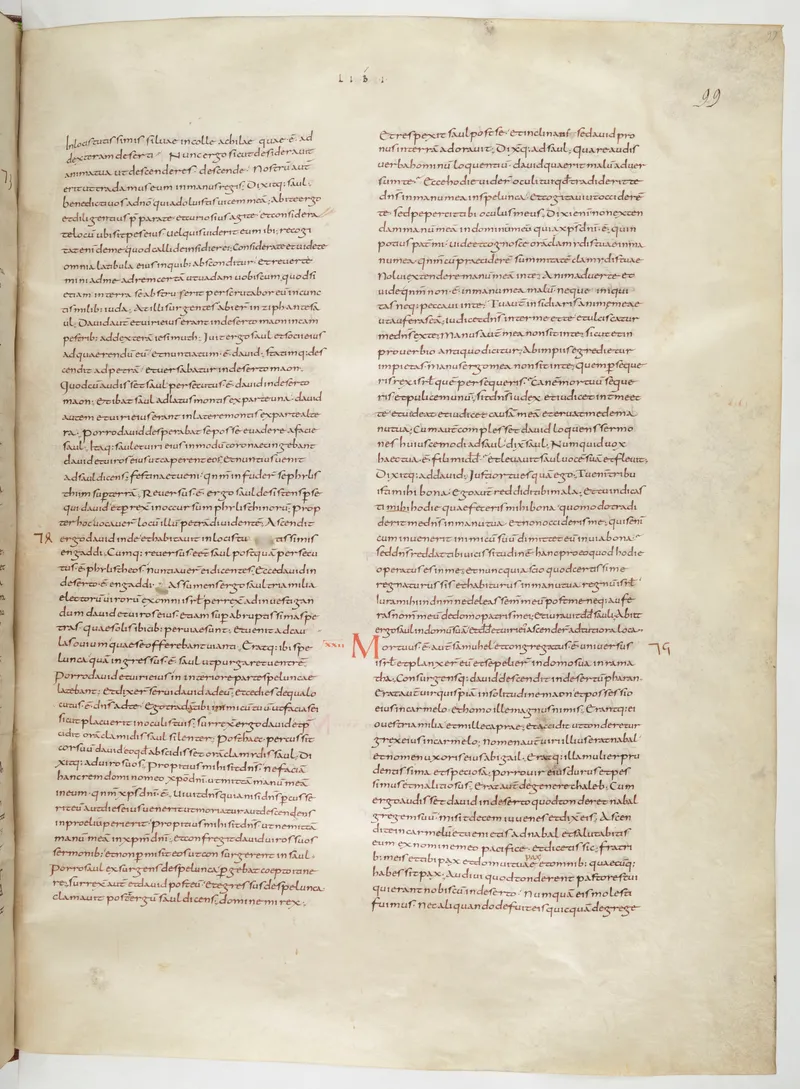 LIB I
99
Inlocis tutissimis siluae incolle achilae quae ē ad
dexteram deserti. Nunc ergo sicut desiderauit
anima tua ut descenderes descende. Nostrū aut̄
erit ut tradamus eum in manus regis. Dixitq; saul.
benedicti uos a dn̄o quia doluistis uicem meā. Abite ergo
et diligentius p̄parate et curiosius agite et considera
te locū ubi sit pes eius uel quis uiderit eum ibi; recogi
tat enī deme quod callide insidier ei; Considerate et uidete
omnia latibula eius in quib; absconditur. et reuerte
mini ad me ad rem certā ut uadam uobiscum; quodsi
etiam in terra se abstruserit perscrutabor eū in cunc
tis milib; iuda; At illi surgentes abier̄ in ziph ante sa
ul. Dauid aut̄ et uiri eius erant in deserto maon in cam
pestrib; ad dexterā iesimuth; Iuit ergo saul et socii eius
ad quaerendū eū et nuntiatum ē dauid; statimq; des
cendit ad petrā et uersabatur in deserto maon.
Quod cū audisset saul persecutus ē dauid in deserto
maon; et ibat saul ad latus montis ex parte una. dauid
autem et uiri eius erant in latere montis ex parte alte
ra. Porro dauid desperabat se posse euadere a facie
saul. Itaq; saul et uiri eius in modū coronae cingebant
dauid et uiros eius ut caperent eos. et nuntius uenit
ad saul dicens; festina et ueni. qn̄m infuder̄ se philis
thim sup terrā. Reuersus ē ergo saul desistens pse
qui dauid et prexit in occursum philisthinorū; prop
ter hoc uocauer̄ locū illū petrā diuidentē. Ascendit
78 ergo dauid inde et habitauit in locis tutissimis
engaddi. Cumq; reuersus eēt saul postquā persecu
tus ē philistheos nuntiauer̄ ei dicentes. Ecce dauid in
deserto ē engaddi. Assumens ergo saul tria milia
electorū uirorū ex omni isrl̄ perrexit ad inuestigan
dum dauid et uiros eius etiam sup abruptissimas pe
tras quae solis ibicib; peruiae sunt. et uenit ad cau
las ouium quae se offerebant uianti. Eratq; ibi spe
lunca quā ingressus ē saul ut purgaret uentrē.
Porro dauid et uiri eius in interiore parte speluncae
latebant. Et dixer̄ serui dauid ad eū; ecce dies de qua lo
cutus ē dn̄s ad te. Ego tradā tibi inimicū tuū ut facias ei
sicut placuerit in oculis tuis. surrexit ergo dauid et p̄
cidit orā clamidis saul silenter. Post haec percussit
cor suū dauid eo qd̄ abscidisset orā clamidis saul. Di
xitq; ad uiros suos. Propitius mihi sit dn̄s ne faciā
hanc rem domino meo xpo dn̄i ut mittā manū meā
in eum. qn̄m xps dn̄i ē. Uiuit dn̄s quia nisi dn̄s pcusse
rit eū aut dies eius uenerit ut moriatur aut descendens
in proeliū perierit. propitius mihi sit dn̄s ut ne mittā
manū meā in xpm dn̄i. et confregit dauid uiros suos
sermonib; et non pmisit eos ut consurgerent in saul.
Porro saul exsurgens de spelunca pgebat coepto itine
re; surrexit aut̄ et dauid post eū. et egressus de spelunca
clamauit post tergū saul dicens; domine mi rex.
Et respexit saul post se. et inclinans se dauid pro
nus in terrā adorauit; Dixitq; ad saul; Quare audis
uerba hominū loquentiū. dauid quaerit malū aduer
sum te. Ecce hodie uider̄ oculi tui qd̄ tradiderit te
dn̄s in manu mea in spelunca. et cogitaui ut occiderē
te. sed pepercit tibi oculus meus; Dixi enī non exten
dam manū meā in dominū meū quia xps dn̄i ē; quin
potius pat̄ mi. uide et cognosce orā clamidis tuae in ma
nu mea. qn̄m cū praeciderē summitatē clamidis tuae
nolui extendere manū meā in te; Animaduerte et
uide qn̄m non ē in manu mea malū neque iniqui
tas neq; peccaui in te. Tu aut̄ insidiaris animae meae
ut auferas eā; iudicet dn̄s inter me et te et ulciscatur
me dn̄s ex te. Manus aut̄ mea non sit in te; sicut et in
prouerbio antiquo dicitur; Ab impiis egredietur
impietas. manus ergo mea non sit in te; Quem pseque
ris rex isrl̄ quē persequeris. Canē mortuū seque
ris et pulicem unū; sit dn̄s iudex et iudicet int̄ me et
te. et uideat et iudicet causā meā et eruat me de ma
nu tua. Cum aut̄ complesset dauid loquens sermo
nes huiuscemodi ad saul. dix̄ saul. Numquid uox
haec tua ē fili mi dd̄. et leuauit saul uocē suā et fleuit;
Dixitq; ad dauid; Iustior tu es quā ego; Tu enī tribu
isti mihi bona. ego aut̄ reddidi tibi mala; et tu indicas
ti mihi hodie quae feceris mihi bona. quomodo tradi
derit me dn̄s in manu tua. et non occideris me; quis enī
cum inuenerit inimicū suū dimittet eū in uia bona.
sed dn̄s reddat tibi uicissitudinē hanc pro eo quod hodie
operatus es in me; et nunc quia scio quod certissime
regnaturus sis et habiturus in manu tua regnū isrl̄
iura mihi in dn̄m ne deleas semē meū post me neq; aufe
ras nom̄ meū de domo patris mei; et iurauit dd̄ sauli. Abiit
ergo saul in domū suā et dd̄ et uiri eius ascender̄ ad tutiora loca.
XXII Mortuus ē aut̄ samuhel et congregatus ē uniuersus 79
isrl̄ et planxer̄ eū et sepelier̄ in domo sua in rama
tha. Consurgensq; dauid descendit in desertū pharan.
Erat aut̄ uir quispiā in solitudine maon et possessio
eius in carmelo. et homo ille magnus nimis. Erantq; ei
oues tria milia et mille caprae; et accidit ut tonderetur
grex eius in carmelo; nomen aut̄ uiri illius erat nabal
et nomen uxoris eius abigail. Eratq; illa mulier pru
dentissima et speciosa; porro uir eius durus et pes
simus et malitiosus. Erat aut̄ de genere chaleb; Cum
ergo audisset dauid in deserto quod tonderet nabal
gregem suū; misit decem iuuenes et dixit eis. Ascen
dite in carmelū et uenietis ad nabal et salutabitis
eum ex nomine meo pacifice. et dicetis sic; fratri
b; meis et tibi pax et domui tuae pax et omnib; quaecūq;
habes sit pax; Audiui quod tonderent pastores tui
qui erant nobiscū in deserto. Numquā eis molesti
fuimus. nec aliquando defuit eis quicquā de grege